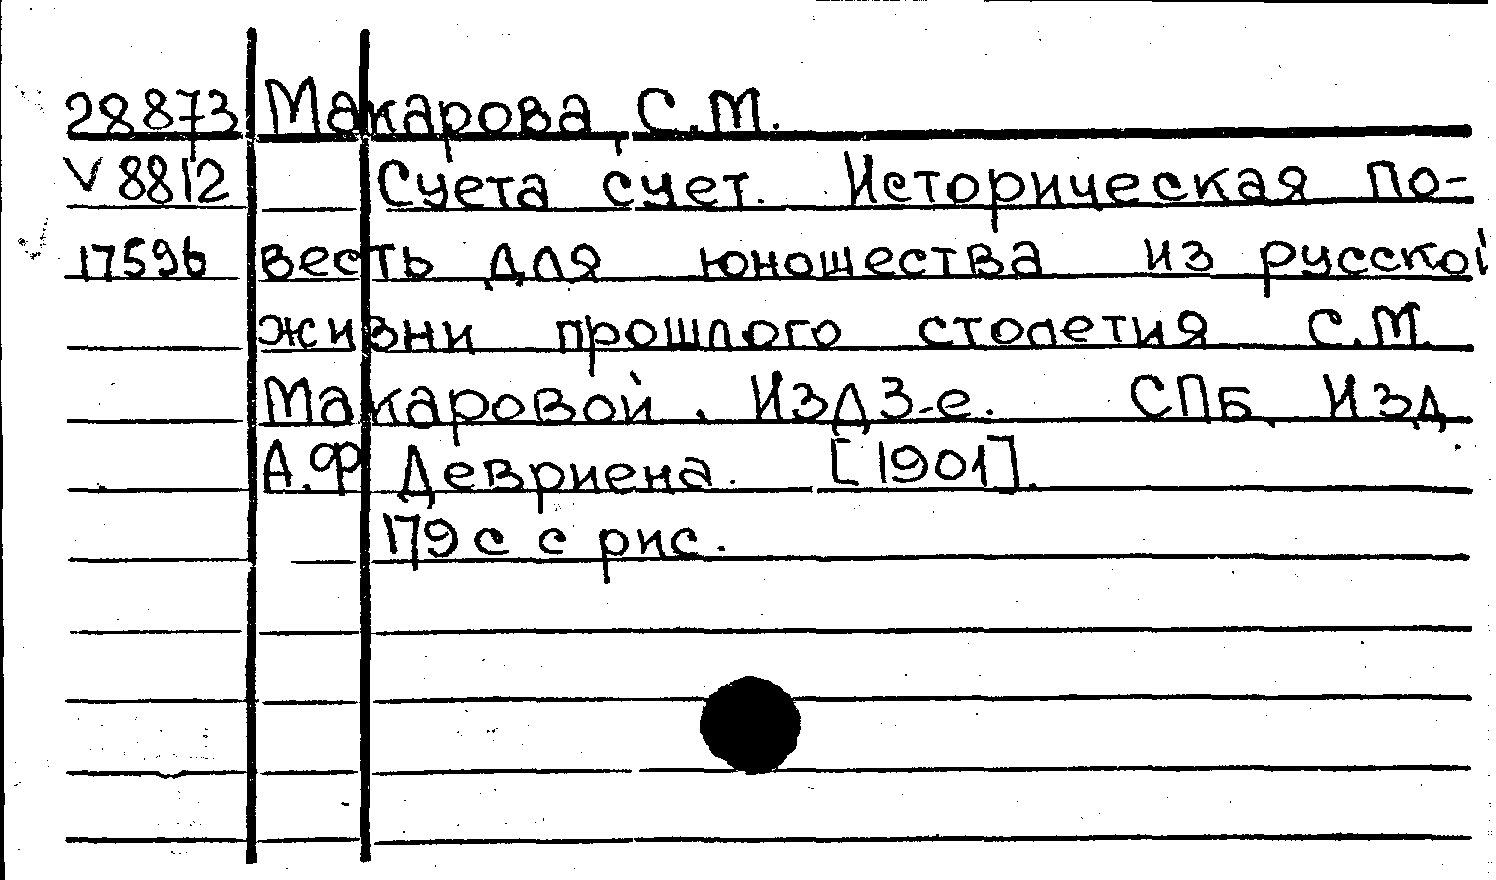 28873 Макарова, С.М.
V 8812 Суета сует. Историческая по-
17596 весть для юношества из русской
жизни прошлого столетия С.М.
Макаровой. Изд 3-е. СПБ, Изд
А.Ф Девриена. [1901].
179 с с рис.